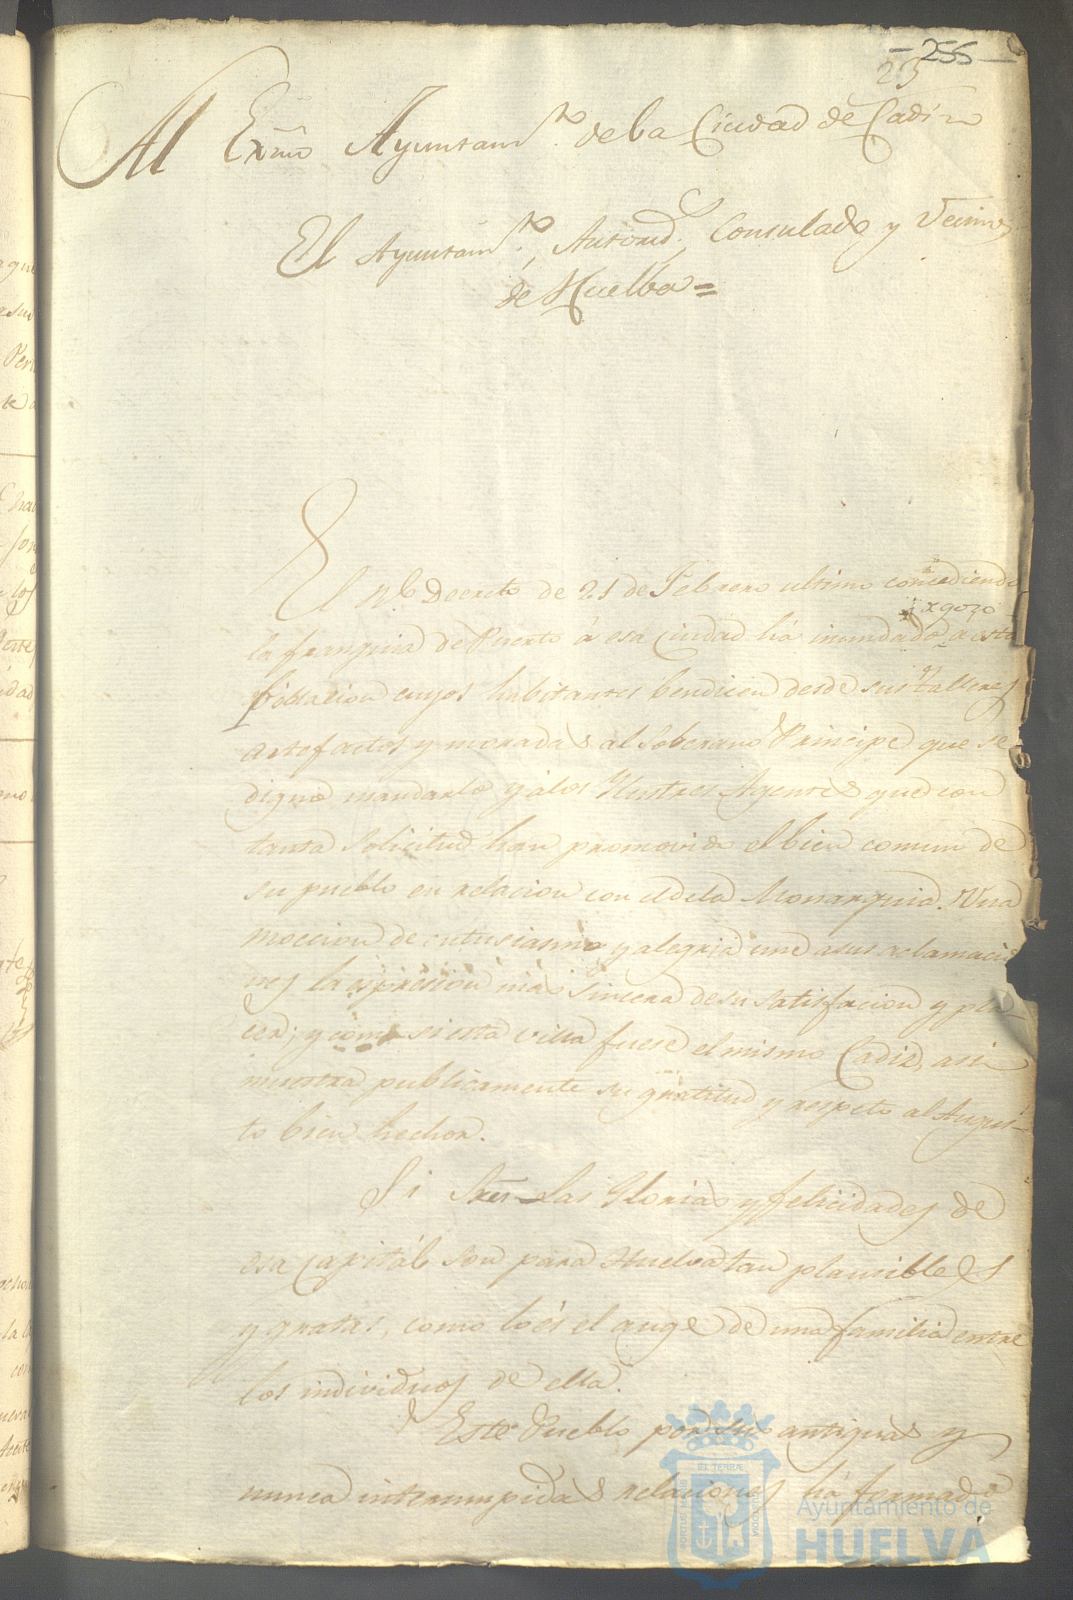 255
23
Al Exmo Ayuntam.to de la Ciudad de Cadiz
El Ayuntam.to, Autorid.s, Consulado y Vecinos
de Huelba =
El Rl. Decreto de 21 de Febrero ultimo concediendo
gozo
la franquicia de Puerto á esa Ciudad há inundado a esta
Poblacion cuyos habitantes bendicen desde sus talleres
artefactos y moradas al Soberano Principe que se
dignó mandarlo y á los Ilustres Agentes que con
tanta solicitud han promovido el bien comun de
su pueblo en relacion con el de la Monarquia. Una
mocion de entusiasmo y alegria une a sus aclamacio
nes la espresion más sincera de su satisfacion y pla-
cer; y como si esta villa fuese el mismo Cadiz, asi
muestra publicamente su gratitud y respeto al Augus-
to bien hechor.
Si Sres. Las Glorias y felicidades de
esa Capitál son para Huelva tan plausibles
y gratas, como lo és el auge de una familia entre
los individuos de ella.
Este Pueblo por sus antiguas y
nunca interrumpidas relaciones há formado
Ayuntamiento de
HUELVA